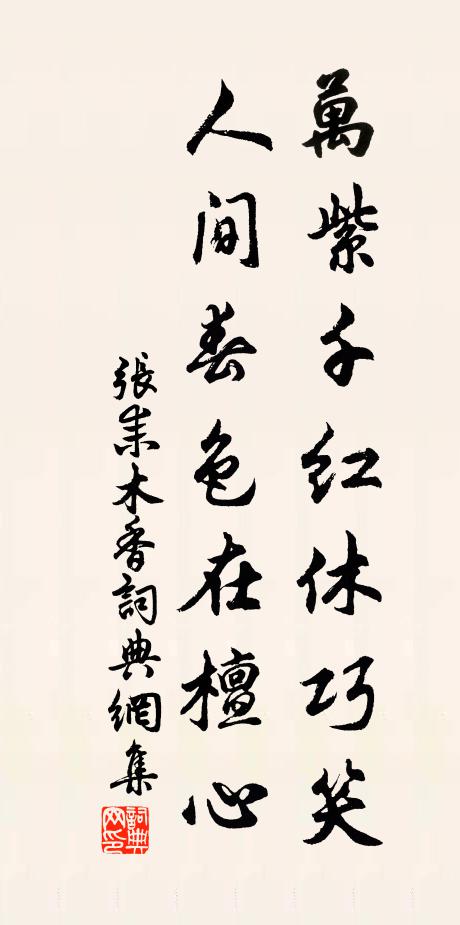 萬紫千紅休巧笑
人间春色在檀心
張耒木香詞典網集
詞典網印